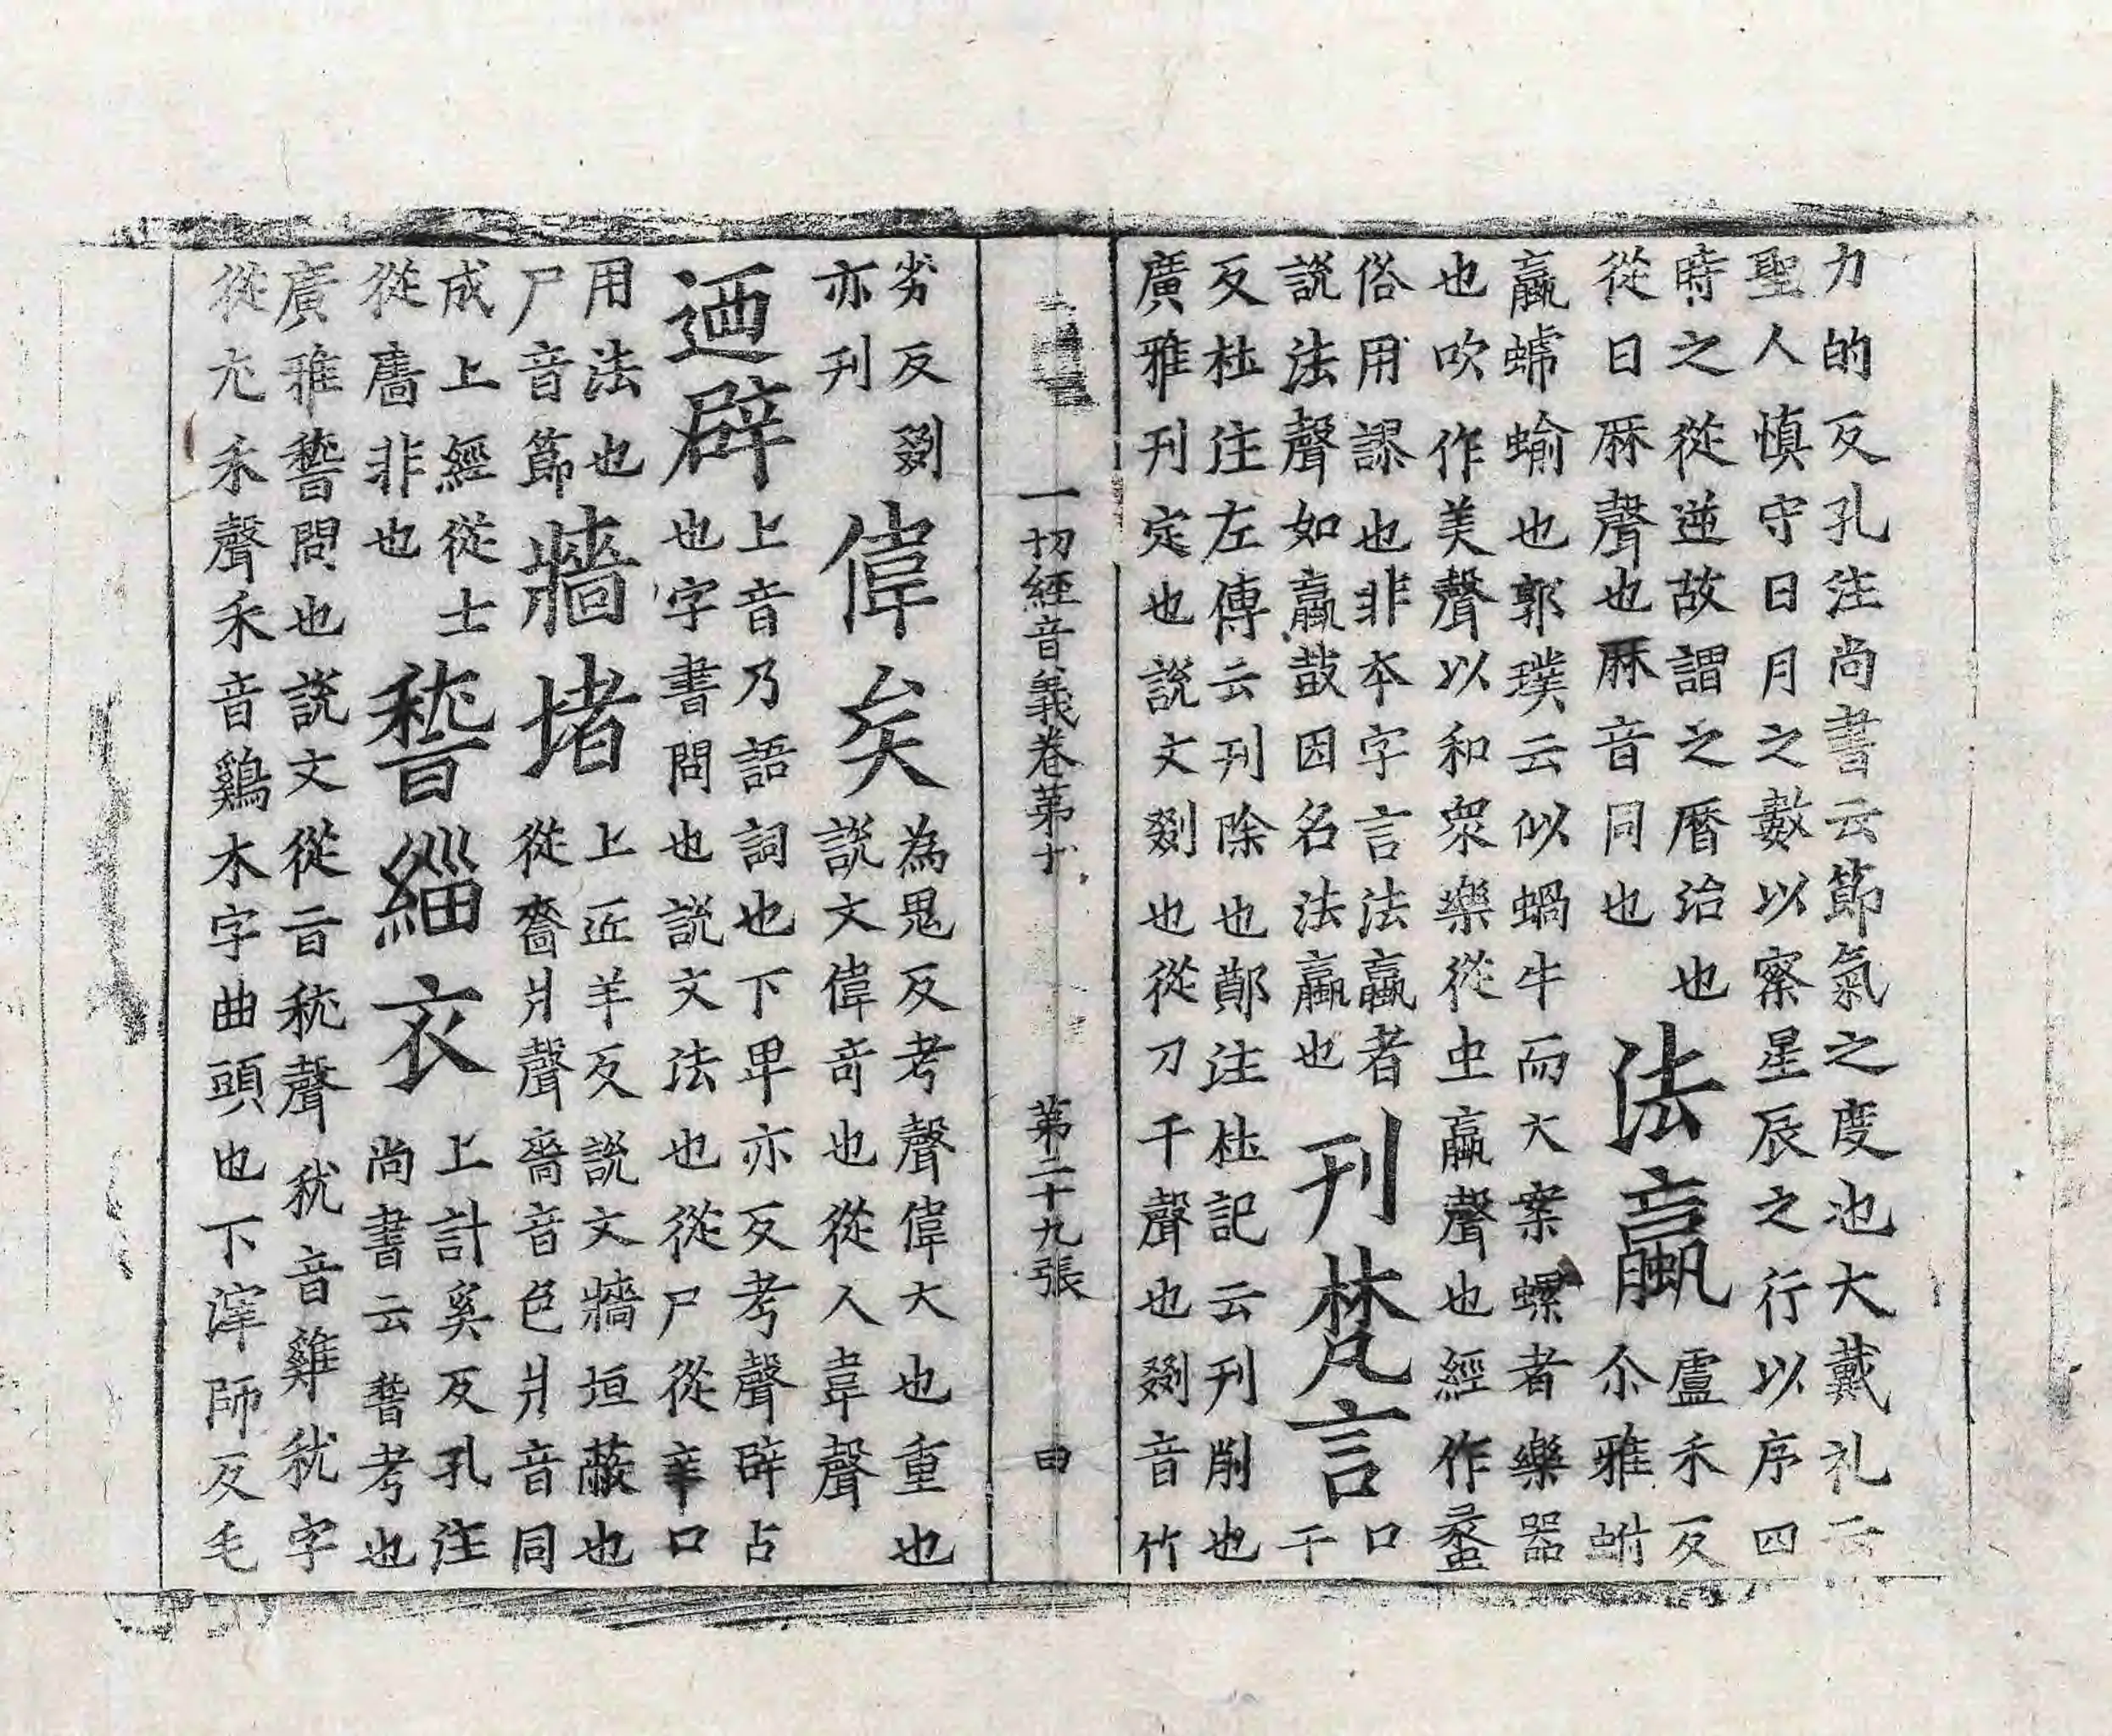 力的反孔注尚書云節氣之度也大戴礼云
聖人慎守日月之數以察星辰之行以序四
時之從逆故謂之曆治也
從日厤聲也厤音同也
法蠃
盧禾反
尒雅蚹
蠃螔蝓也郭璞云似蝸牛而大案螺者樂器
也吹作美聲以和衆樂從虫𣎆聲也經作蠡
俗用謬也非本字言法蠃者
說法聲如蠃鼓因名法蠃也
刊梵言
口
干
反杜注左傳云刊除也鄭注杜記云刊削也
廣雅刊定也說文剟也從刀干聲也剟音竹
一切經音義卷第十
第二十九張
曰
劣反剟
亦刊
偉矣
為鬼反考聲偉大也重也
說文偉奇也從人韋聲
迺辟
上音乃語詞也下卑亦反考聲辟占
也字書問也說文法也從尸從辛口
用法也
尸音節
牆堵
上匠羊反說文牆垣蔽也
從嗇爿聲嗇音色爿音同
成上經從士
從廧非也
䭫緇衣
上計奚反孔注
尚書云䭫考也
廣雅䭫問也說文從旨𥝌聲𥝌音雞𥝌字
從尢禾聲禾音鷄木字曲頭也下滓師反毛